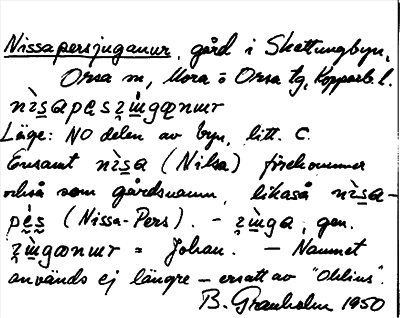 Nissapersjuganur, gård i Skattungbyn,
Orsa sn, Mora o Orsa tg, Kopparb. l.
Läge: NO delen av byn, litt. C.
Ensamt nìsa (Nilsa) förekommer
också som gårdsnamn, likaså nìsa-
pès (Nissa-Pers). – gen.
= Johan. – Namnet
används ej längre – ersatt av "Ohlins".
B. Granholm 1950